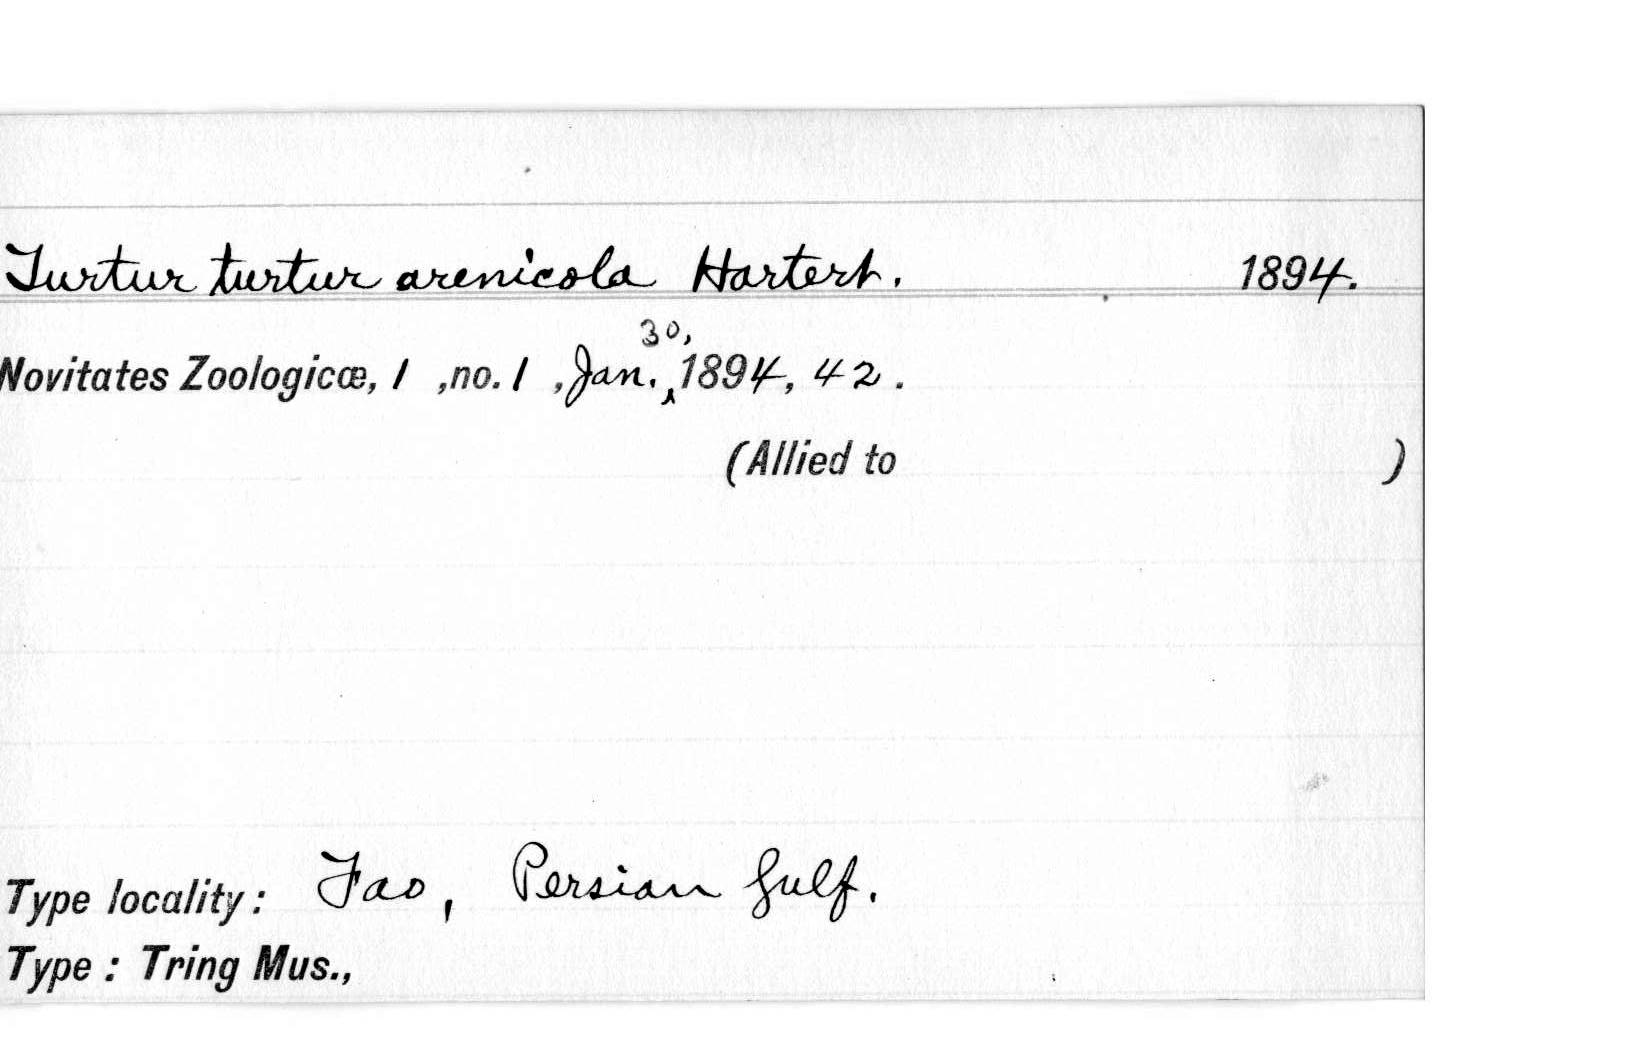 Turtur turtur arenicola Hartert. 1894.
Novitates Zoologicæ, 1 ,no. 1 , Jan. 30, 1894, 42.
(Allied to )
Type locality: Fao, Persian Gulf.
Type: Tring Mus.,